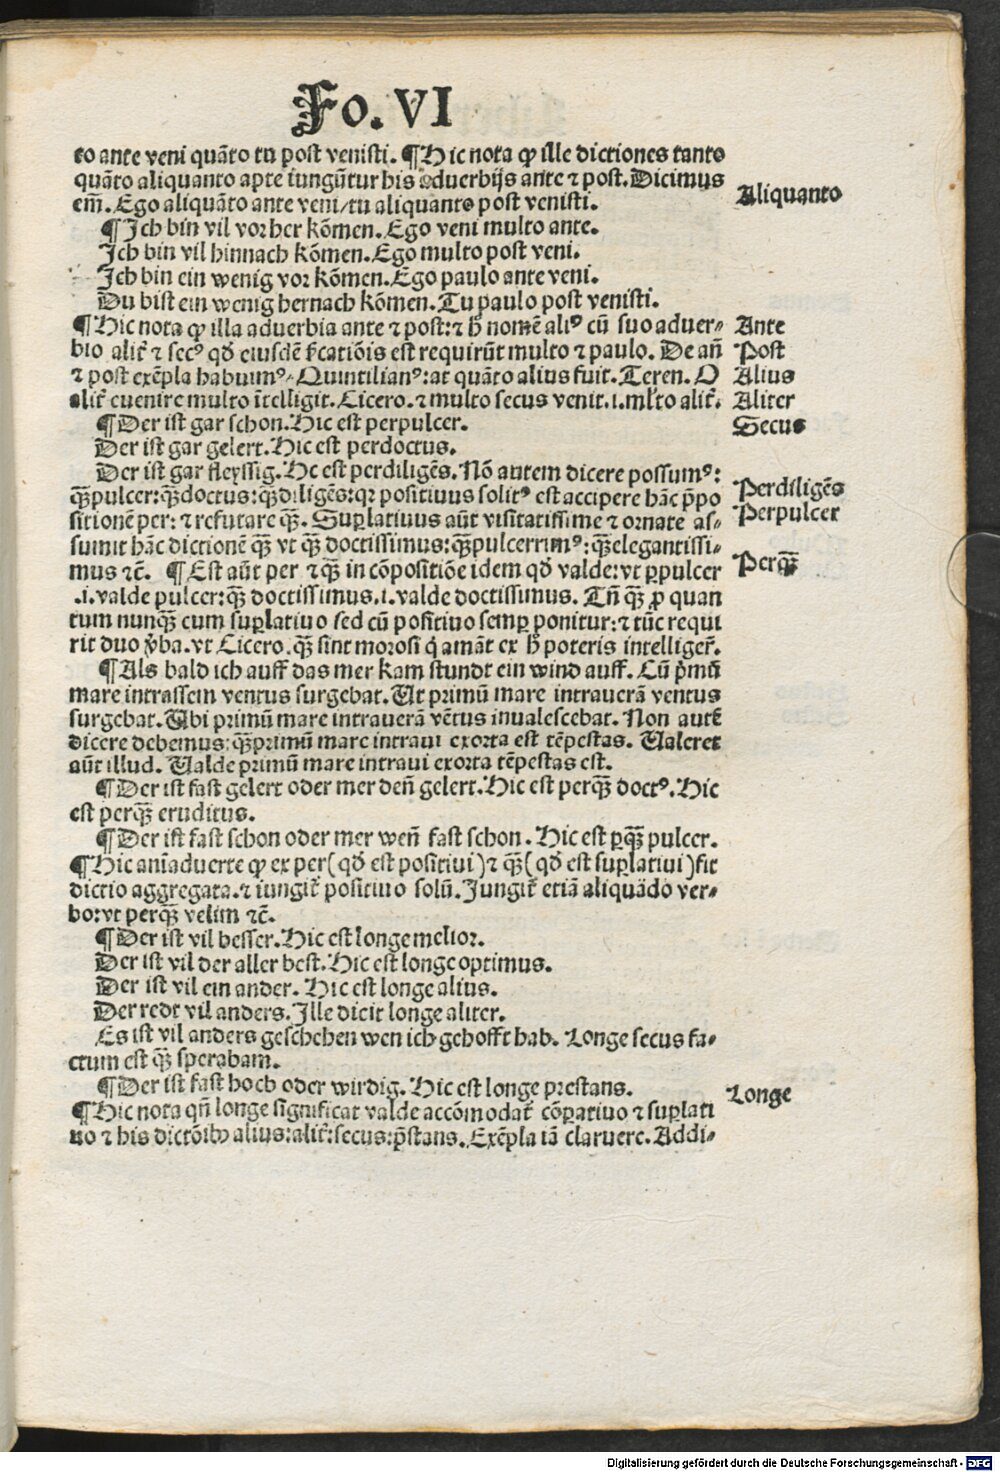 Fo. VI
to ante veni quãto tu post venisti. ¶Hic nota ꝙ ille dictiones tanto
quãto aliquanto apte iungũtur his aduerbijs ante ⁊ post. Dicimus
em̃. Ego aliquãto ante veni/tu aliquanto post venisti.
Aliquanto
¶Ich bin vil vor her kõmen. Ego veni multo ante.
Ich bin vil hinnach kõmen. Ego multo post veni.
Ich bin ein wenig vor kõmen. Ego paulo ante veni.
Du bist ein wenig hernach kõmen. Tu paulo post venisti.
¶Hic nota ꝙ illa aduerbia ante ⁊ post: ⁊ h̃ nomẽ aliꝰ cũ suo aduer⸗
Ante
bio alit̃ ⁊ secꝰ qd̃ eiusdẽ f̃catiõis est requirũt multo ⁊ paulo. De añ
Post
⁊ post exẽpla habuimꝰ. Quintilianꝰ: at quãto alius fuit. Teren. O
Alius
alit̃ euenire multo ĩtelligit. Cicero. ⁊ multo secus venit .i. ml̃to alit̃.
Aliter
¶Der ist gar schon. Hic est perpulcer.
Secus
Der ist gar gelert. Hic est perdoctus.
Der ist gar fleyssig. Hc est perdiligẽs. Nõ autem dicere possumꝰ:
q̃ꝫpulcer: q̃ꝫdoctus: q̃ꝫdiligẽs: qꝛ positiuus solitꝰ est accipere hãc p̃po
Perdiligẽs
sitionẽ per: ⁊ refutare q̃ꝫ. Suꝑlatiuus aũt vsitatissime ⁊ ornate as⸗
Perpulcer
sumit hãc dictionẽ q̃ꝫ vt q̃ꝫ doctissimus: q̃ꝫpulcerrimꝰ: q̃ꝫelegantissi⸗
mus ⁊c̃. ¶Est aũt per ⁊ q̃ꝫ in cõpositiõe idem qd̃ valde: vt ꝑpulcer
Perq̃ꝫ
.i. valde pulcer: q̃ꝫ doctissimus .i. valde doctissimus. Tñ q̃ꝫ ꝓ quan
tum nunq̃ꝫ cum suꝑlatiuo sed cũ positiuo semꝑ ponitur: ⁊ tũc requi
rit duo v̾ba. vt Cicero. q̃ꝫ sint morosi q̇ amãt ex h̃ poteris intelliger̃.
¶Als bald ich auff das mer kam stundt ein wind auff. Cũ p̃mũ
mare intrassem ventus surgebat. Ut primũ mare intrauerã ventus
surgebat. Ubi primũ mare intrauerã vẽtus inualescebat. Non autẽ
dicere debemus: q̃ꝫprimũ mare intraui exorta est tẽpestas. Ualeret
aũt illud. Ualde primũ mare intraui exorta tẽpestas est.
¶Der ist fast gelert oder mer deñ gelert. Hic est perq̃ꝫ doctꝰ. Hic
est perq̃ꝫ eruditus.
¶Der ist fast schon oder mer weñ fast schon. Hic est ꝑq̃ꝫ pulcer.
¶Hic aniaduerte ꝙ ex per (qd̃ est positiui) ⁊ q̃ꝫ (qd̃ est suꝑlatiui) fit
dictio aggregata. ⁊ iungit̃ positiuo solũ. Jungit̃ etiã aliquãdo ver⸗
bo: vt perq̃ꝫ velim ⁊c̃.
¶Der ist vil besser. Hic est longe melior.
Der ist vil der aller best. Hic est longe optimus.
Der ist vil ein ander. Hic est longe alius.
Der redt vil anders. Ille dicit longe aliter.
Es ist vil anders geschehen wen ich gehofft hab. Longe secus fa⸗
ctum est q̃ꝫ sperabam.
¶Der ist fast hoch oder wirdig. Hic est longe prestans.
Longe
¶Hic nota qñ longe significat valde accõmodat̃ cõꝑatiuo ⁊ suꝑlati
uo ⁊ his dictõibꝫ alius: alit̃: secus: p̃stans. Exẽpla iã claruere. Addi⸗
Digitalisierung gefördert durch die Deutsche Forschungsgemeinschaft - DFG